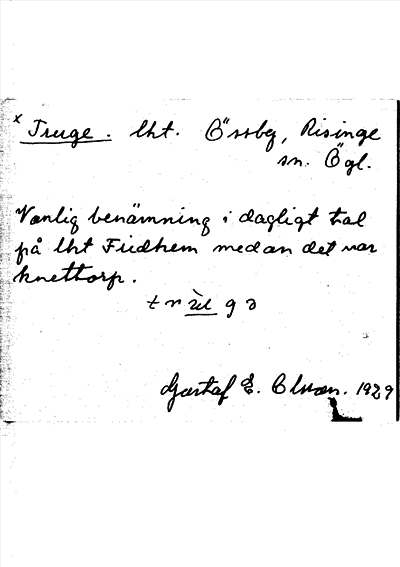 x Truge. lht. Össby, Risinge
sn. Ögl.
Vanlig benämning i dagligt tal
på lht Fridhem medan det var
knekttorp.
Gustaf E. Olsson. 1929